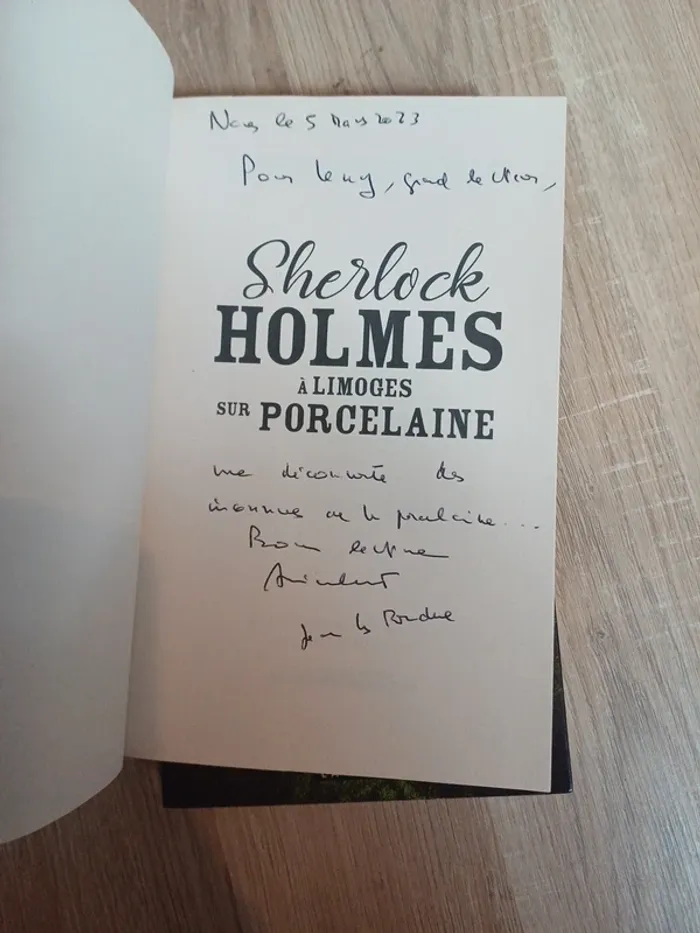 le 5 Mars 2023
Pour grand lecteur,
Sherlock
HOLMES
À LIMOGES
SUR PORCELAINE
une découverte des
inconnues de la porcelaine...
Bonne lecture
Amicalement